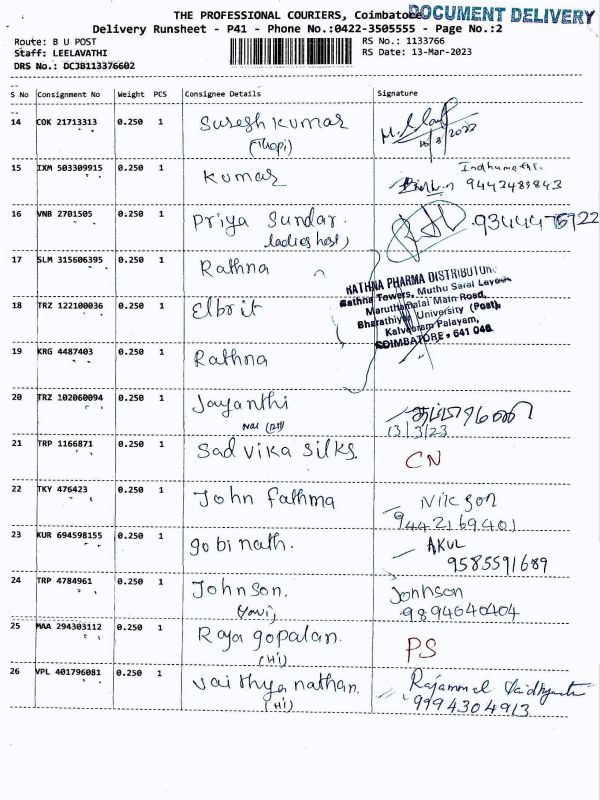 THE PROFESSIONAL COURIERS, Coimbatore
DOCUMENT DELIVERY
Delivery Runsheet - P41 - Phone No.:0422-3505555 - Page No.:2
Route: B U POST
RS No.: 1133766
Staff: LEELAVATHI
RS Date: 13-Mar-2023
DRS No.: DCJB113376602
S No Consignment No Weight PCS Consignee Details Signature
14 COK 21713313 0.250 1 Suresh kumar
(Thopi)
15 IXM 503309915 0.250 1 Kumar
9442489843
16 VNB 2701505 0.250 1 Priya Sundar. 9344475922
(ladies host)
17 SLM 315606395 0.250 1 Rathna
RATHNA PHARMA DISTRIBUTOR
Rathna Towers, Muthu Sarai Layout
Maruthamalai Main Road,
Bharathiyar University (Post),
Kalveeram Palayam,
COIMBATORE - 641 046
18 TRZ 122100036 0.250 1 Elbrit
19 KRG 4487403 0.250 1 Rathna
20 TRZ 102060094 0.250 1 Jayanthi
13/3/23
21 TRP 1166871 0.250 1 Sadvika Silks. CN
22 TKY 476423 0.250 1 John fathma
9442169401
23 KUR 694598155 0.250 1 gobinath. AKUL
9585591689
24 TRP 4784961 0.250 1 Johnson. Johnson
9894640404
25 MAA 294303112 0.250 1 Rajagopalan. PS
(Hi)
26 VPL 401796081 0.250 1 Vaithyanathan. Rajammal
(Hi) 9994304913